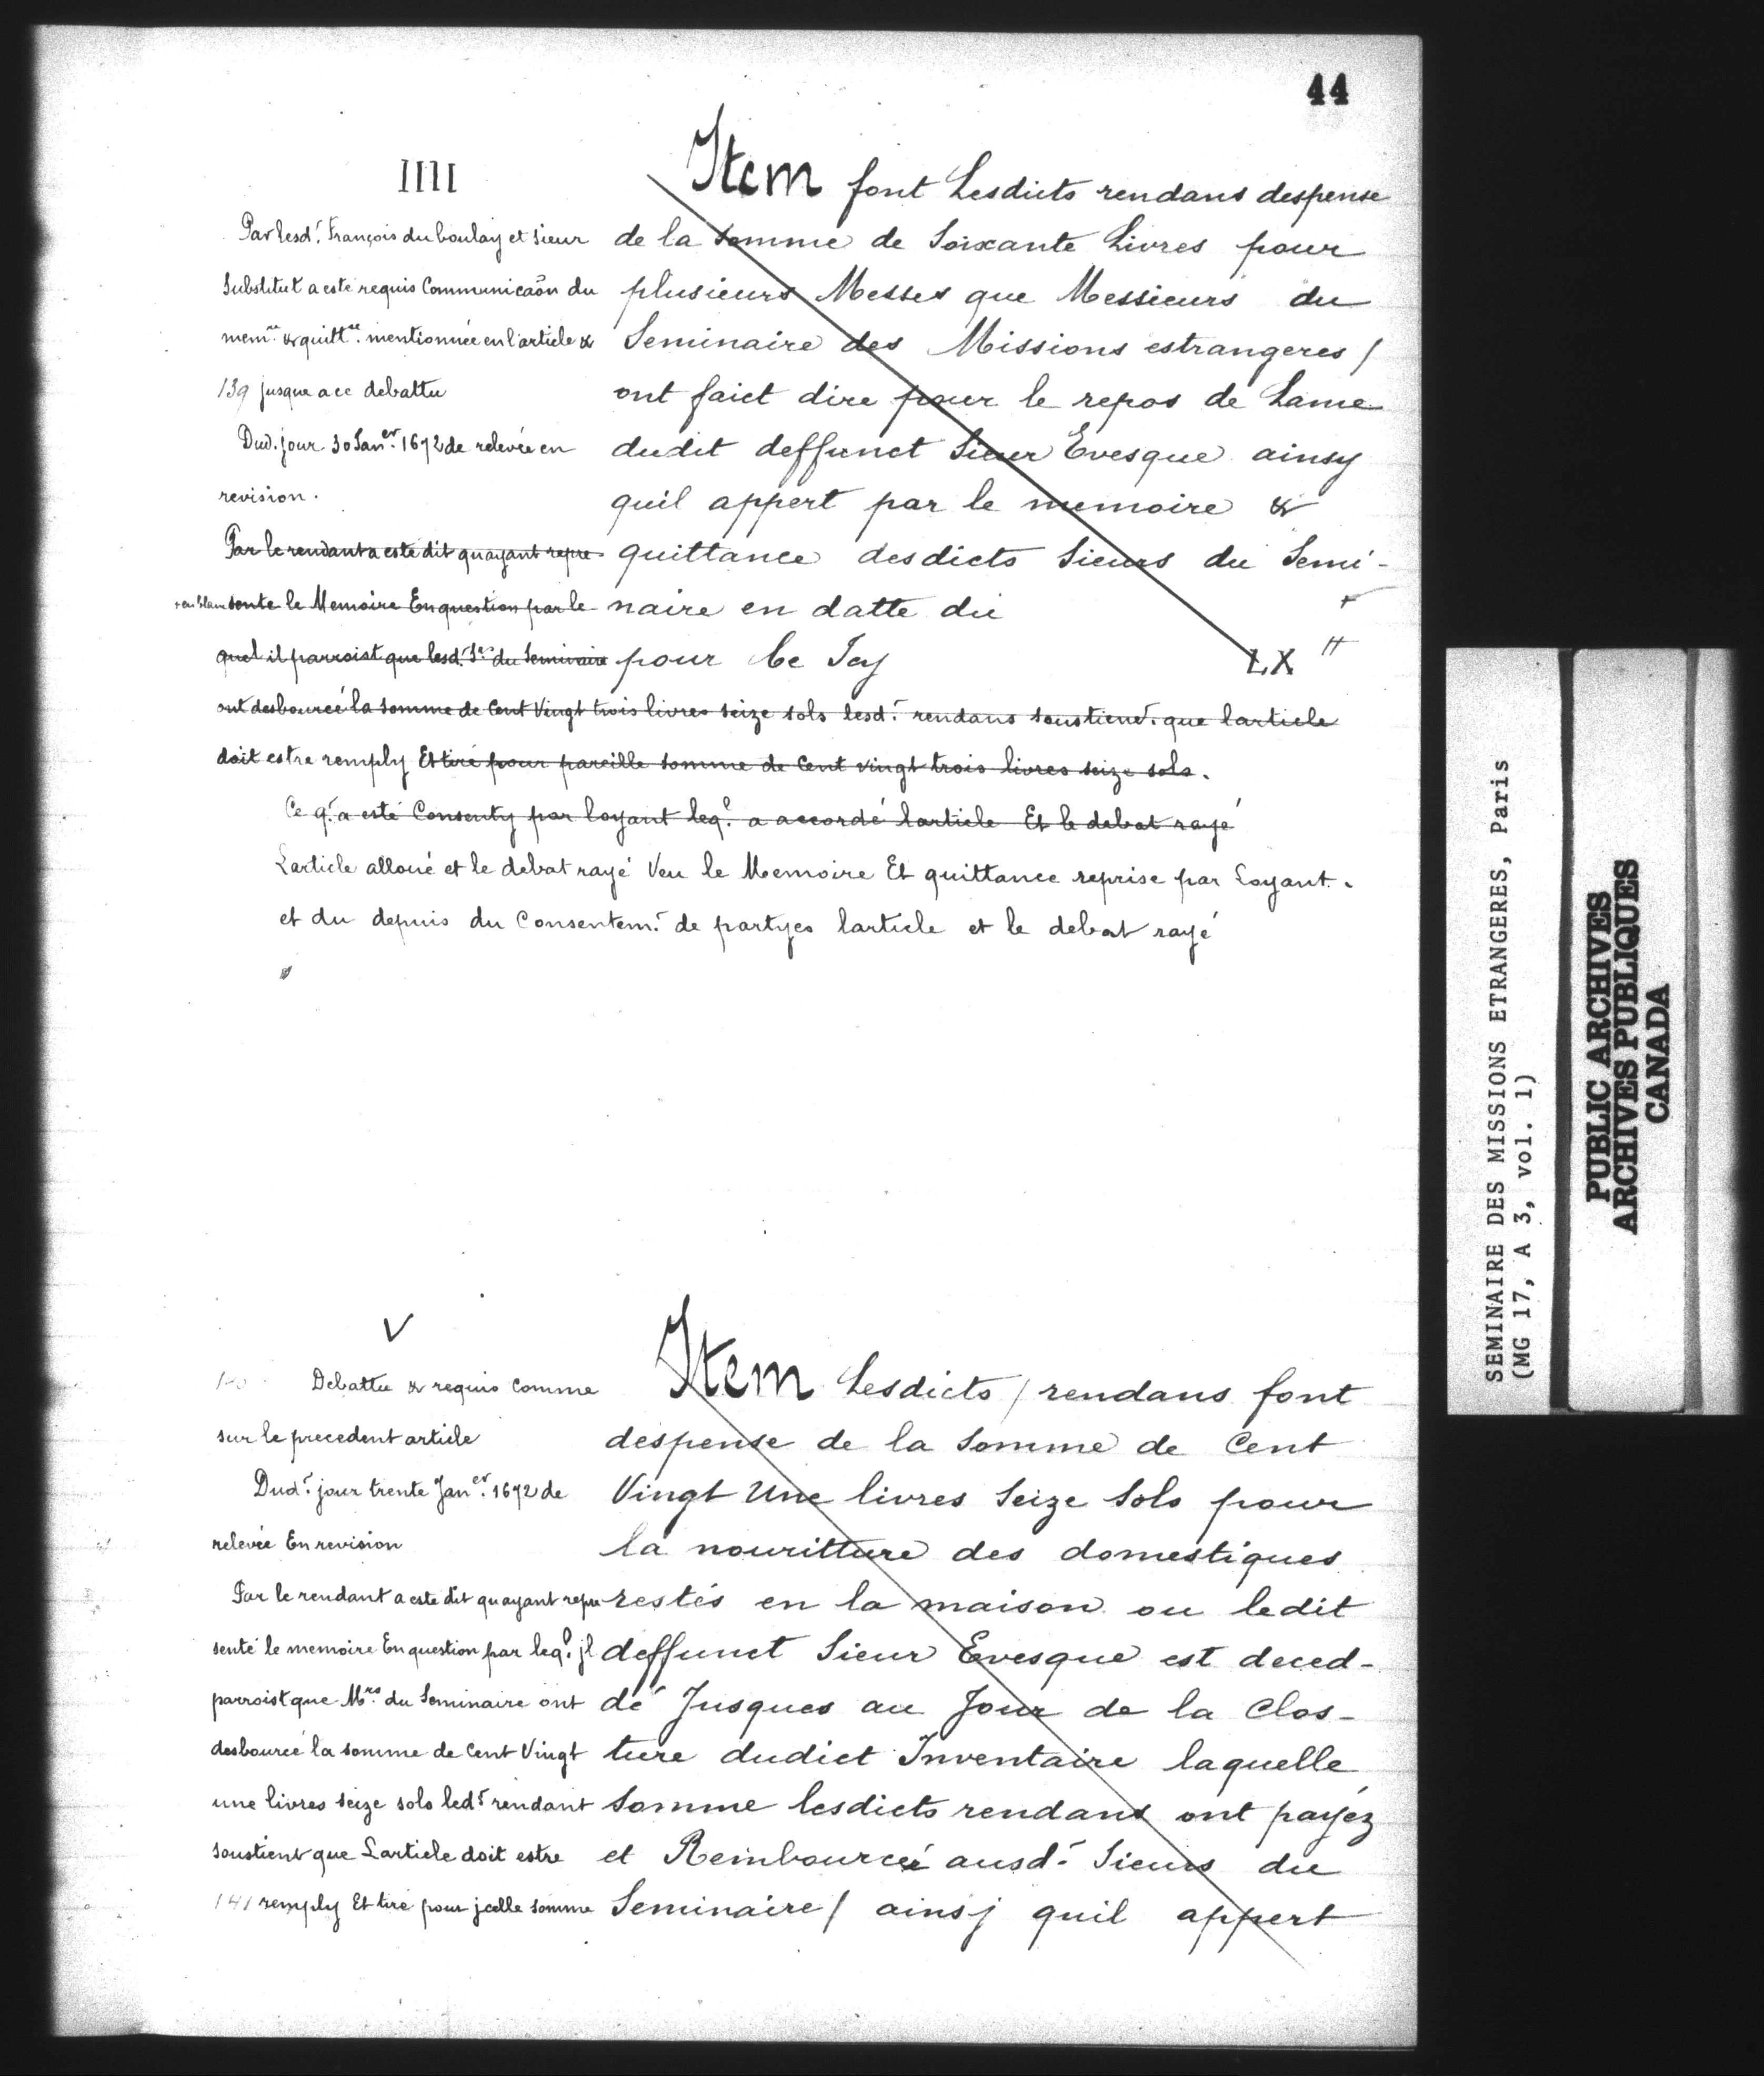 44
IIII
Item font Lesdicts rendans despense
de la somme de Soixante Livres pour
plusieurs Messes que Messieurs du
Seminaire des Missions estrangeres /
ont faict dire pour le repos de Lame
dudit deffunct Sieur Evesque ainsy
quil appert par le memoire &
quittance desdicts Sieurs du Semi-
naire en datte du +
pour Ce Icy LX ₶
Par lesd.t François du boulay et Sieur
Substitut a esté requis Communicaõn du
mem.re & quitt.ce mentionnée en l'article &
139 jusque a ce debattu
Dud. jour 30 Jan.er 1672 de relevée en
revision.
Par le rendant a esté dit quayant repre
+ en blanc senté le Memoire En question par le
quel il parroist que lesd. S.rs du Seminaire
ont desbourcé la somme de Cent Vingt trois livres seize sols lesd.t rendans soustienn.t que larticle
doit estre remply Et tiré pour pareille somme de Cent vingt trois livres seize sols.
Ce q.i a esté Consenty par loyant leq.l a accordé larticle Et le debat rayé
Larticle alloué et le debat rayé Veu le Memoire Et quittance reprise par Loyant.
et du depuis du Consentem.t de partyes larticle et le debat rayé
V
Item Lesdicts / rendans font
despense de la Somme de Cent
Vingt Une livres Seize Sols pour
la nouritture des domestiques
restés en la maison ou ledit
deffunct Sieur Evesque est deced-
dé Jusques au Jour de la Clos-
ture dudict Inventaire laquelle
Somme lesdicts rendans ont payéz
et Rembourcéé ausd.t Sieurs du
Seminaire / ainsj quil appert
Debattu & requis Comme
sur le precedent article
Dud.t jour trente Jan.er 1672 de
relevée En revision
Par le rendant a esté dit quayant repre
senté le memoire En question par leq.l jl
parroist que M.rs du Seminaire ont
desbourcé la somme de Cent Vingt
une livres seize sols led.t rendant
soustient que Larticle doit estre
141 remply Et tiré pour jcelle somme
SEMINAIRE DES MISSIONS ETRANGERES, Paris
(MG 17, A 3, vol. 1)
PUBLIC ARCHIVES
ARCHIVES PUBLIQUES
CANADA